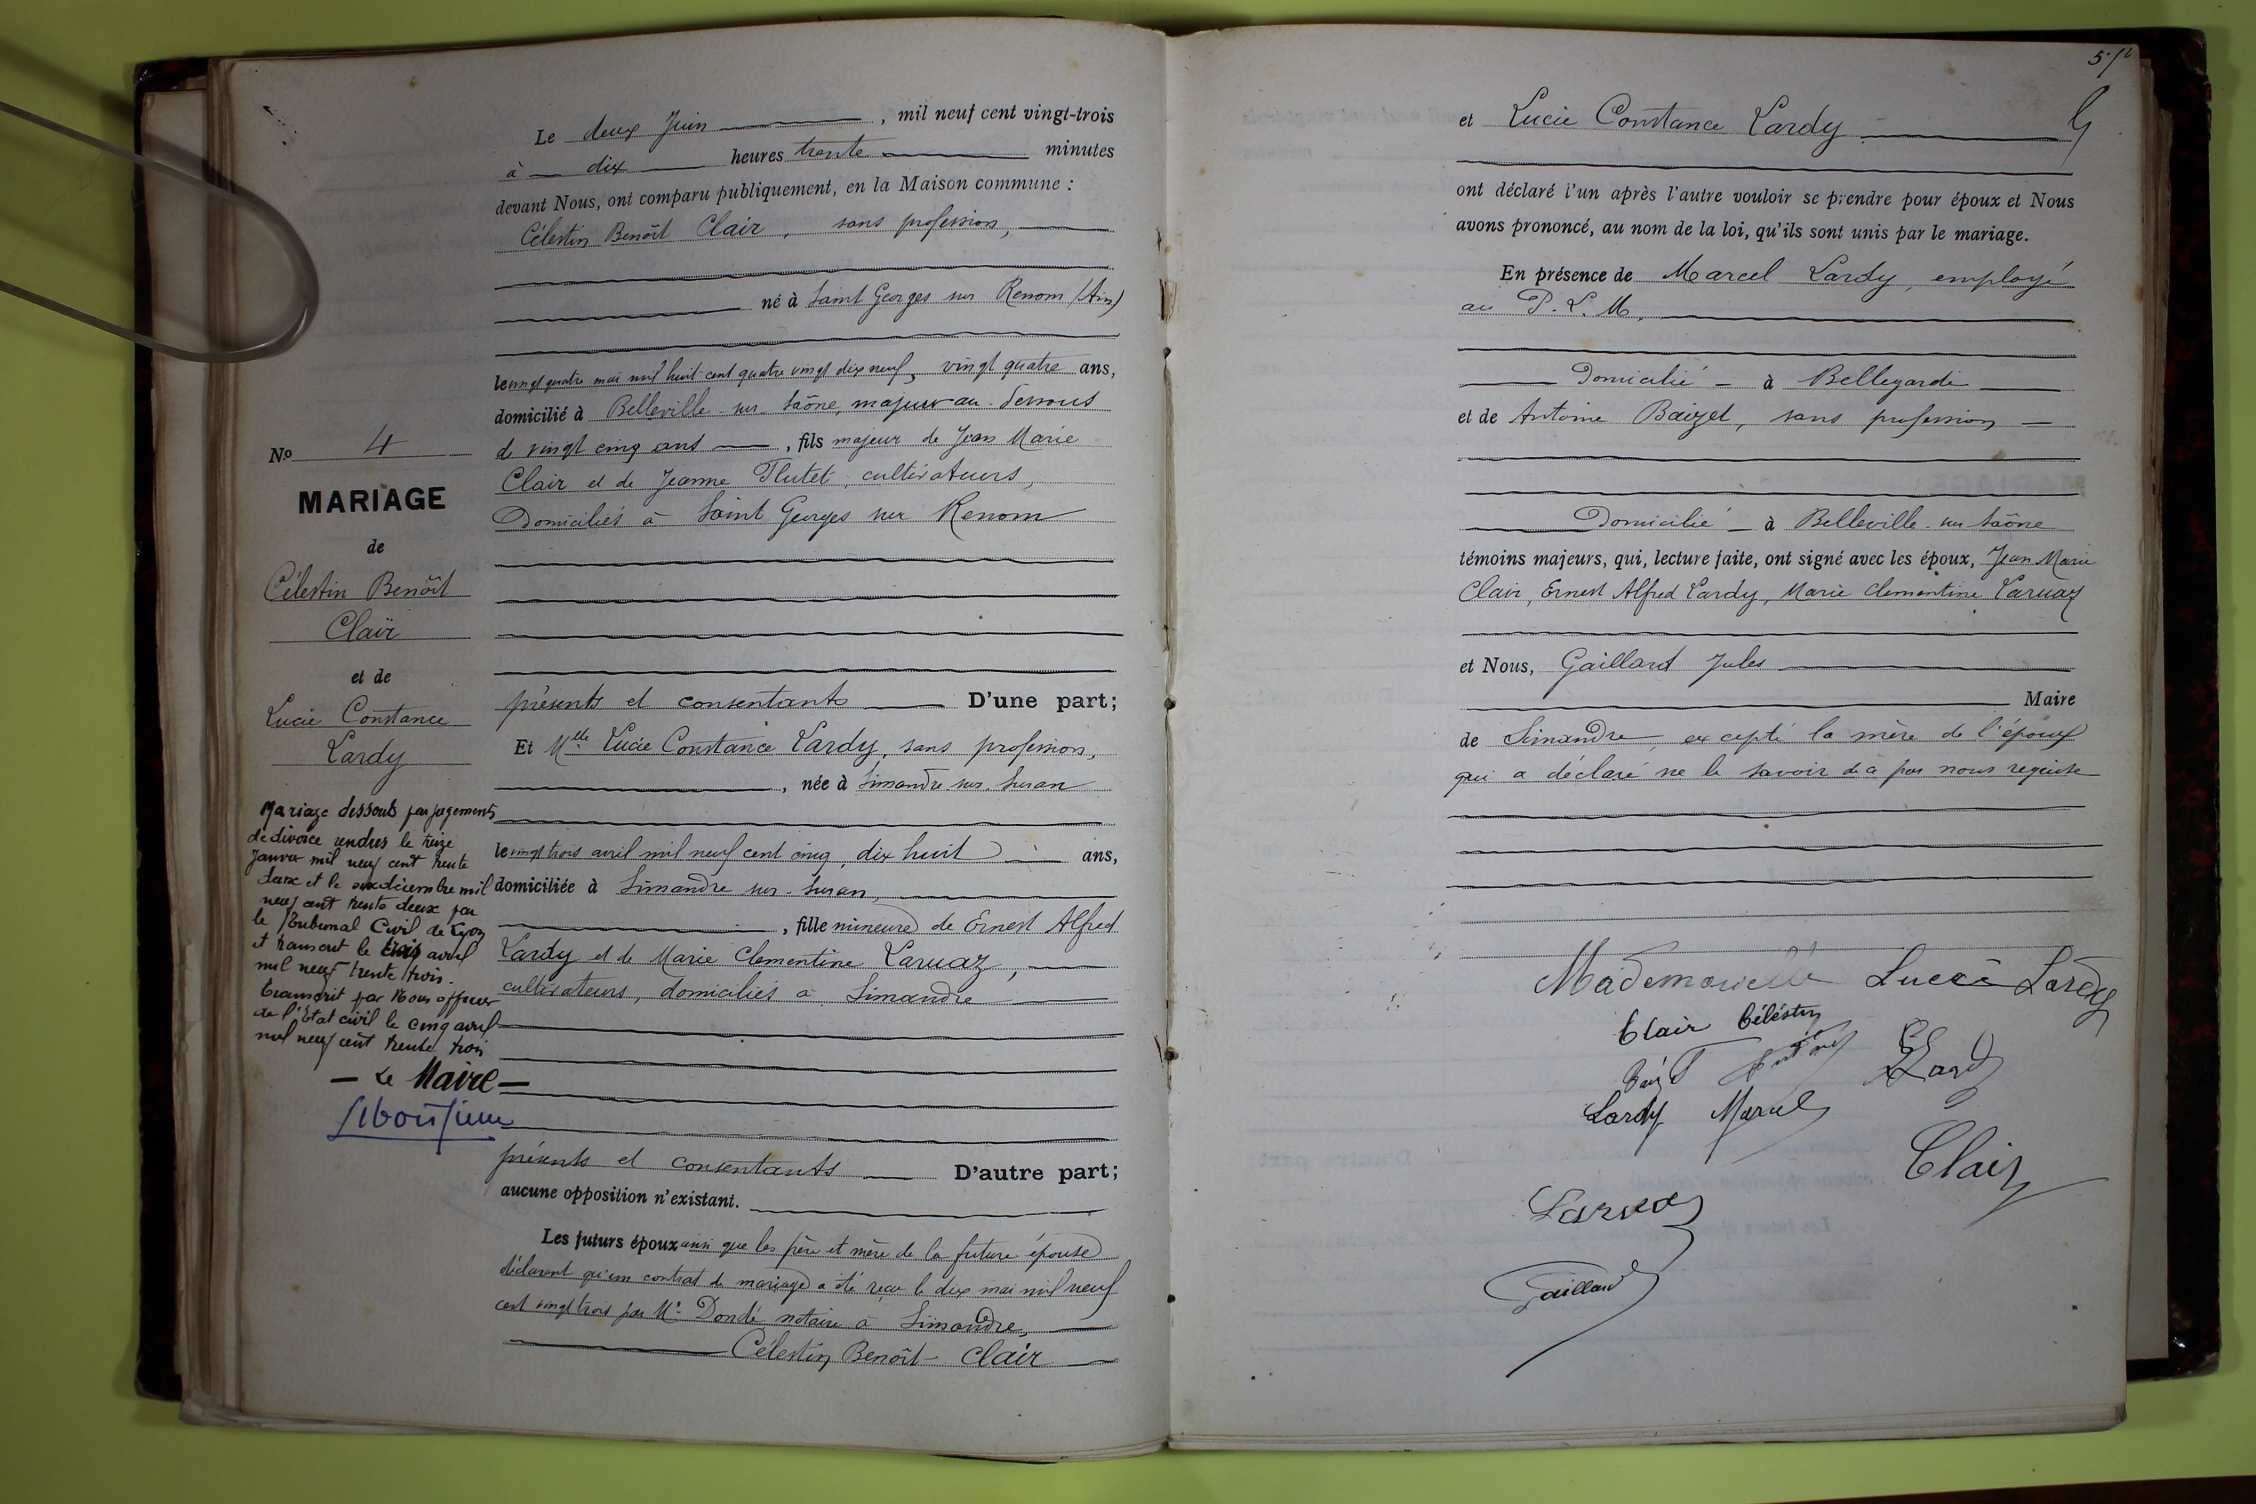 Le deux Juin , mil neuf cent vingt-trois
à dix heures trente minutes
devant Nous, ont comparu publiquement, en la Maison commune :
Célestin Benoît Clair, sans profession,
né à Saint Georges sur Renom (Ain)
le vingt quatre mai mil huit cent quatre vingt dix neuf, vingt quatre ans,
domicilié à Belleville sur Saône, majeur au-dessous
de vingt cinq ans , fils majeur de Jean Marie
Clair et de Jeanne Flutet, cultivateurs,
Domiciliés à Saint Georges sur Renom
présents et consentants D'une part;
Et Melle Lucie Constance Lardy, sans profession,
, née à Simandre sur Suran
le vingt trois avril mil neuf cent cinq, dix huit ans,
domiciliée à Simandre sur Suran,
, fille mineure de Ernest Alfred
Lardy et de Marie Clementine Laruaz,
cultivateurs, domiciliés à Simandre
présents et consentants D'autre part;
aucune opposition n'existant.
Les futurs époux ainsi que les père et mère de la future épouse
déclarent qu'un contrat de mariage a été reçu le dix mai mil neuf
cent vingt trois par Me Dondé notaire à Simandre,
Célestin Benoît Clair
No 4
MARIAGE
de
Célestin Benoît
Clair
et de
Lucie Constance
Lardy
Mariage dessouts par jugements
de divorce rendus le treize
Janvier mil neuf cent trente
deux et le six décembre mil
neuf cent trente deux par
le Tribunal Civil de Lyon
et transcrit le trois avril
mil neuf trente trois.
transcrit par Nous officier
de l'Etat civil le cinq avril
mil neuf cent trente trois
— Le Maire —
5
et Lucie Constance Lardy
ont déclaré l'un après l'autre vouloir se prendre pour époux et Nous
avons prononcé, au nom de la loi, qu'ils sont unis par le mariage.
En présence de Marcel Lardy, employé
au P. L. M,
Domicilié à Bellegarde
et de Antoine Baizet, sans profession
Domicilié à Belleville sur Saône
témoins majeurs, qui, lecture faite, ont signé avec les époux, Jean Marie
Clair, Ernest Alfred Lardy, Marie Clementine Laruaz
et Nous, Gaillard Jules
Maire
de Simandre, excepté la mère de l'époux
qui a déclaré ne le savoir de a par nous requise
Mademoiselle Lucie Lardy
Clair Céléstin
Antoine
Lardy
Lardy Marcel
Clair
Laruaz
Gaillard